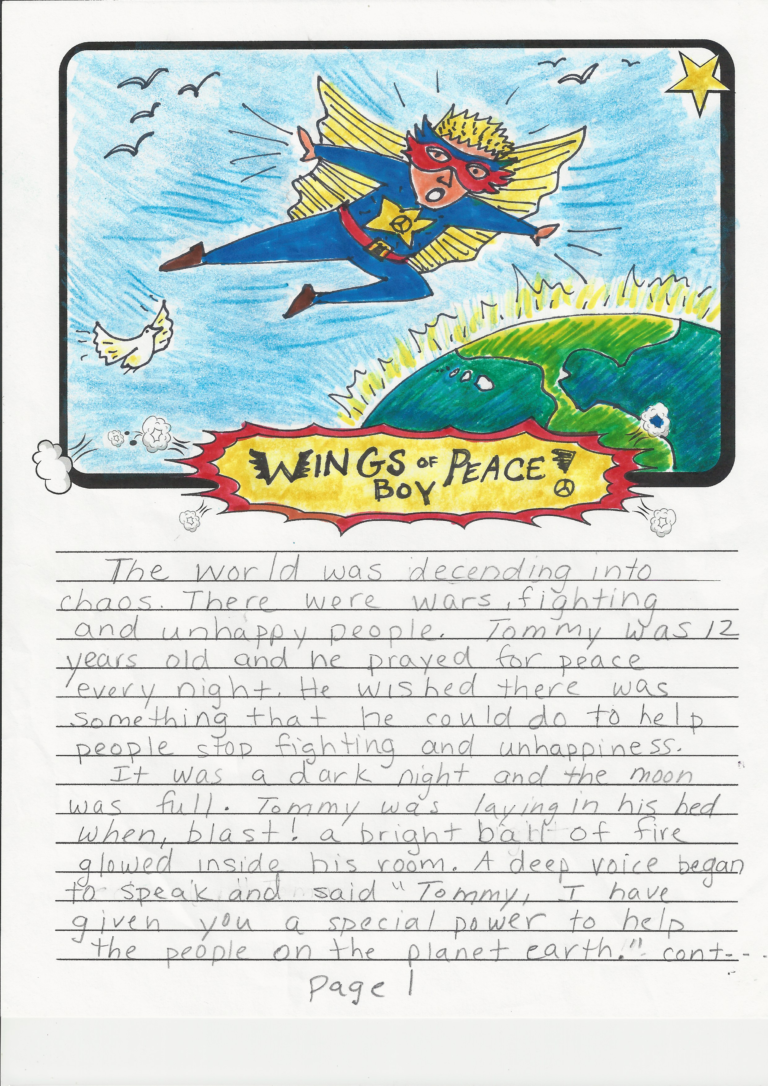 WINGS OF PEACE
BOY!
The world was decending into
chaos. There were wars, fighting
and unhappy people. Tommy was 12
years old and he prayed for peace
every night. He wished there was
something that he could do to help
people stop fighting and unhappiness.
It was a dark night and the moon
was full. Tommy was laying in his bed
when, blast! a bright ball of fire
glowed inside his room. A deep voice began
to speak and said "Tommy, I have
given you a special power to help
the people on the planet earth." cont---.
Page 1